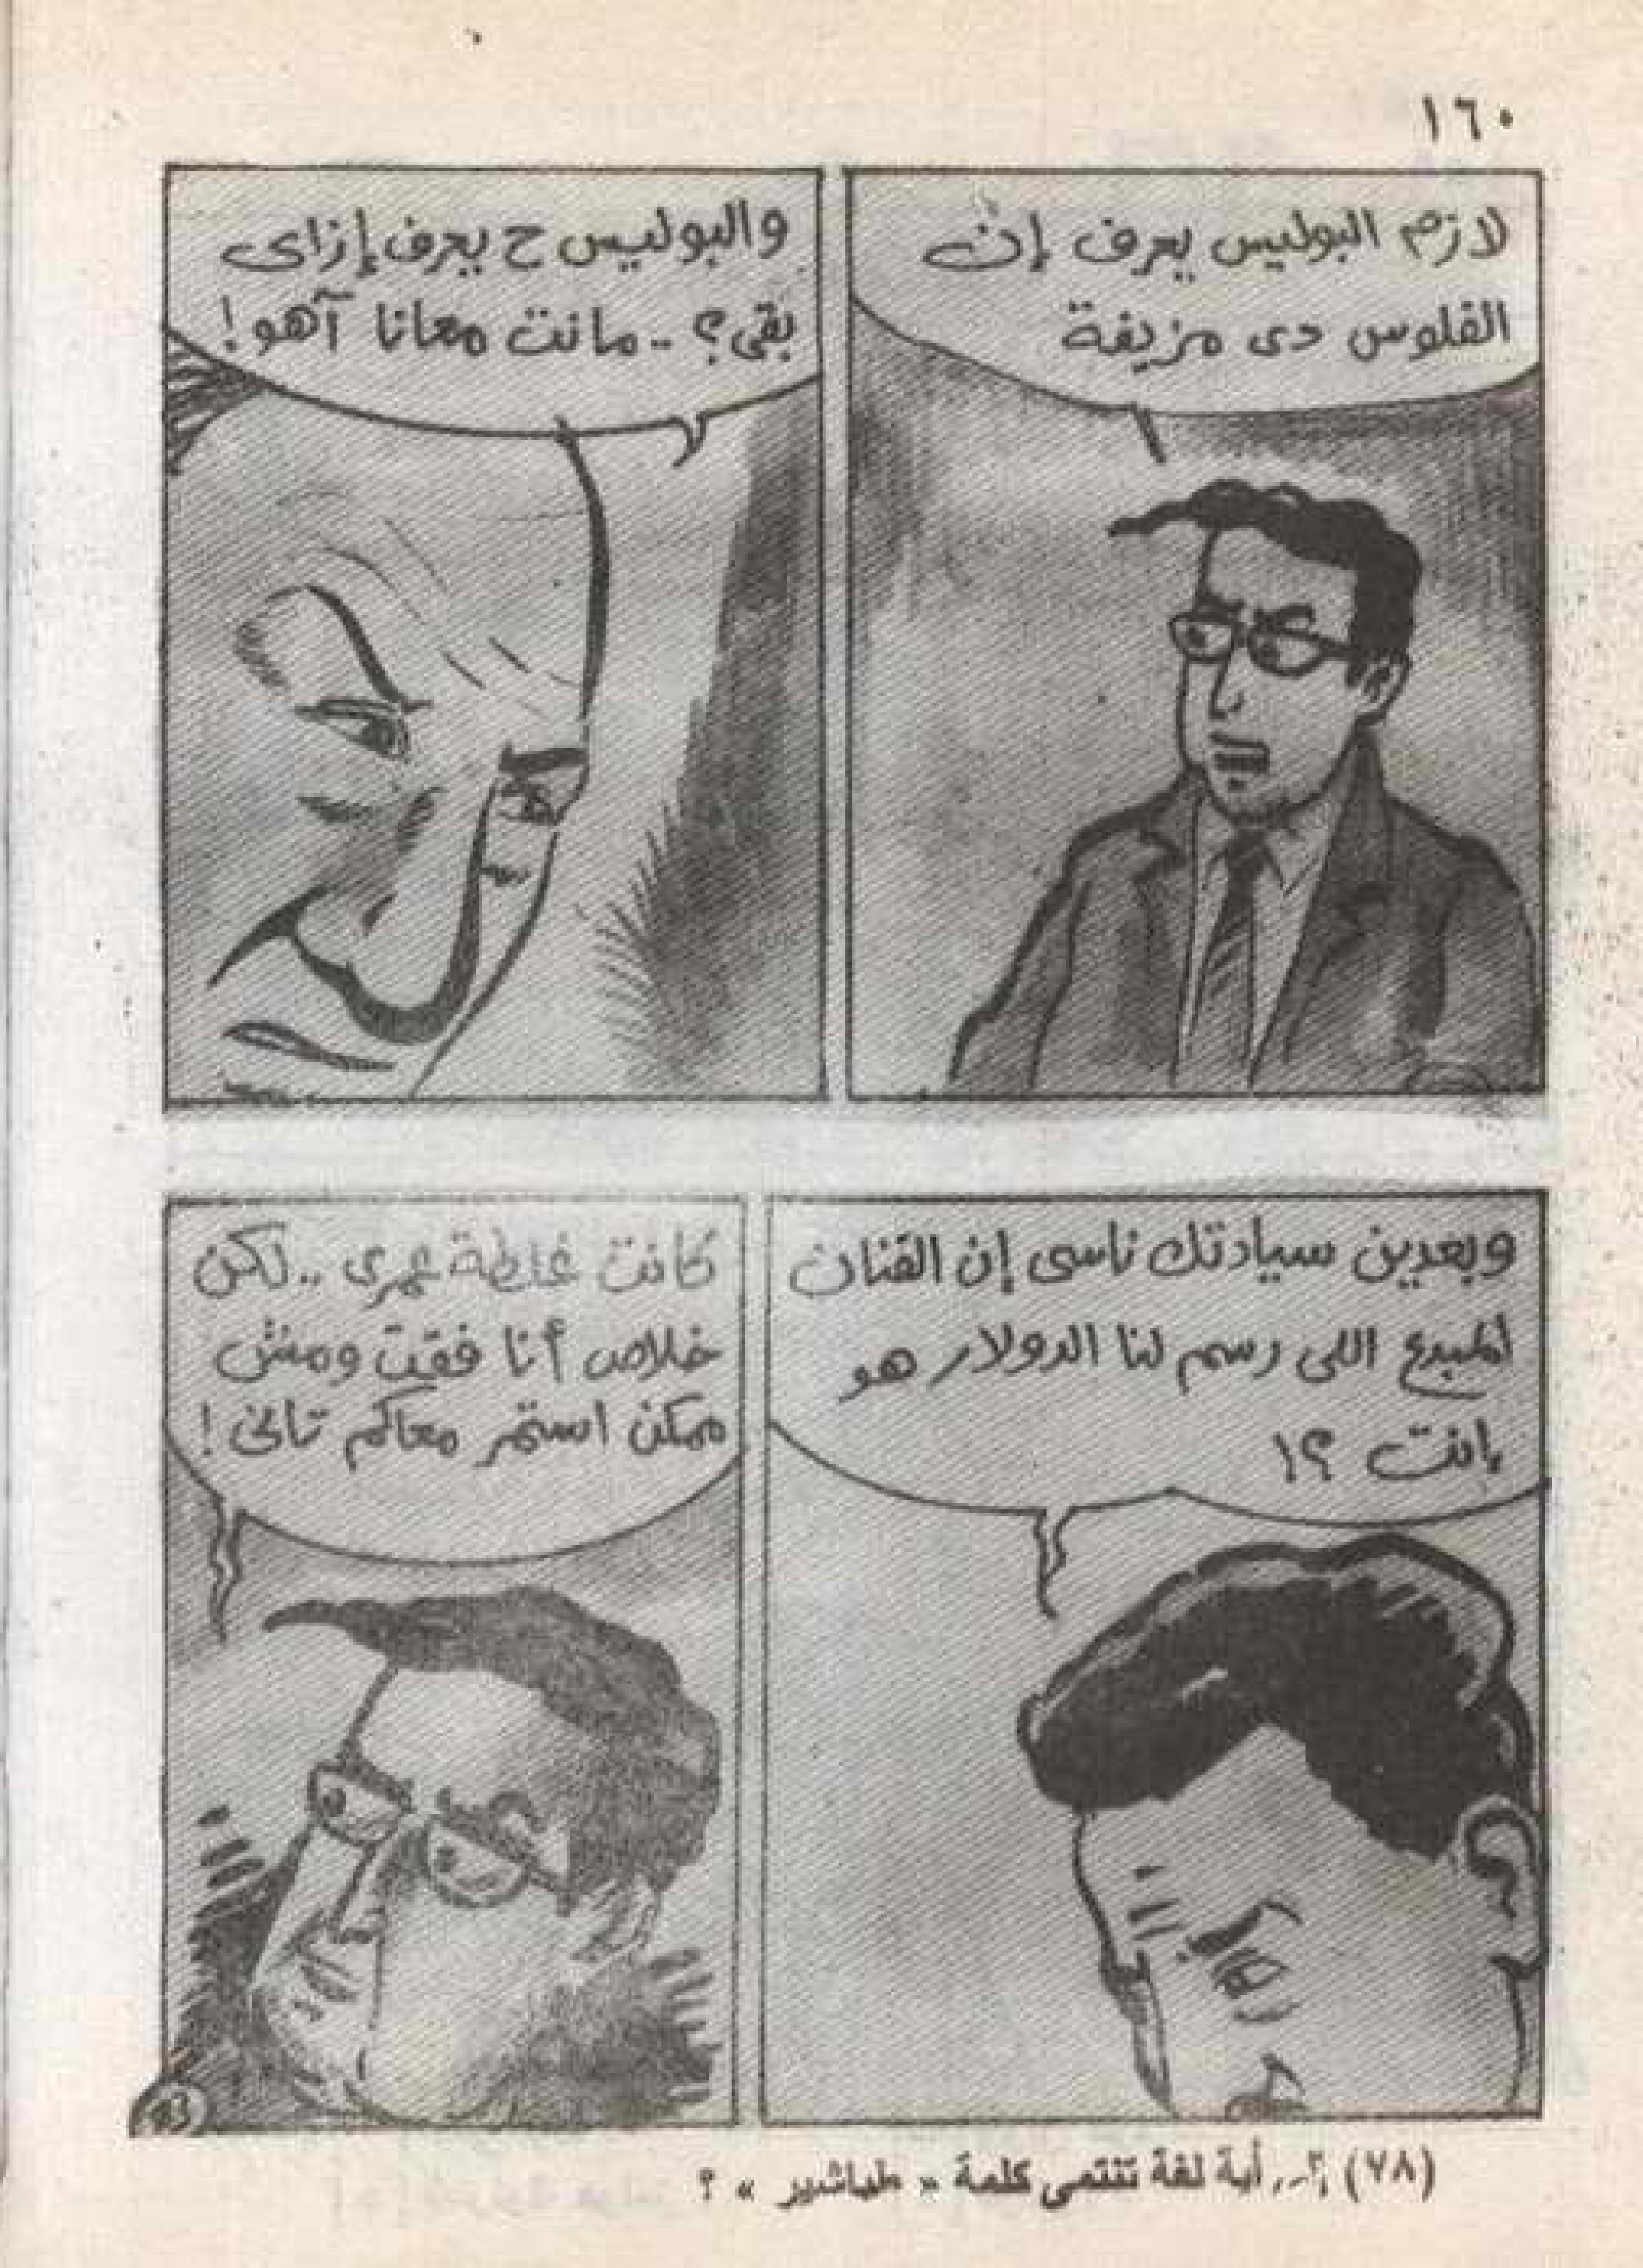 ١٦٠
لازم البوليس يعرف إن
الفلوس دى مزيفة
والبوليس ح يعرف إزاى
بقى؟ .. مانت معانا آهو!
وبعدين سيادتك ناسى إن الفنان
المبدع اللى رسم لنا الدولار هو
إنت ؟!
كانت غلطة عمرى .. لكن
خلاص أنا فقت ومش
ممكن استمر معاكم تانى !
(٧٨) أية لغة تنتمى كلمة « طباشير » ؟